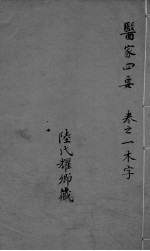 醫家四要 卷之一木字
陸氏耀卿藏